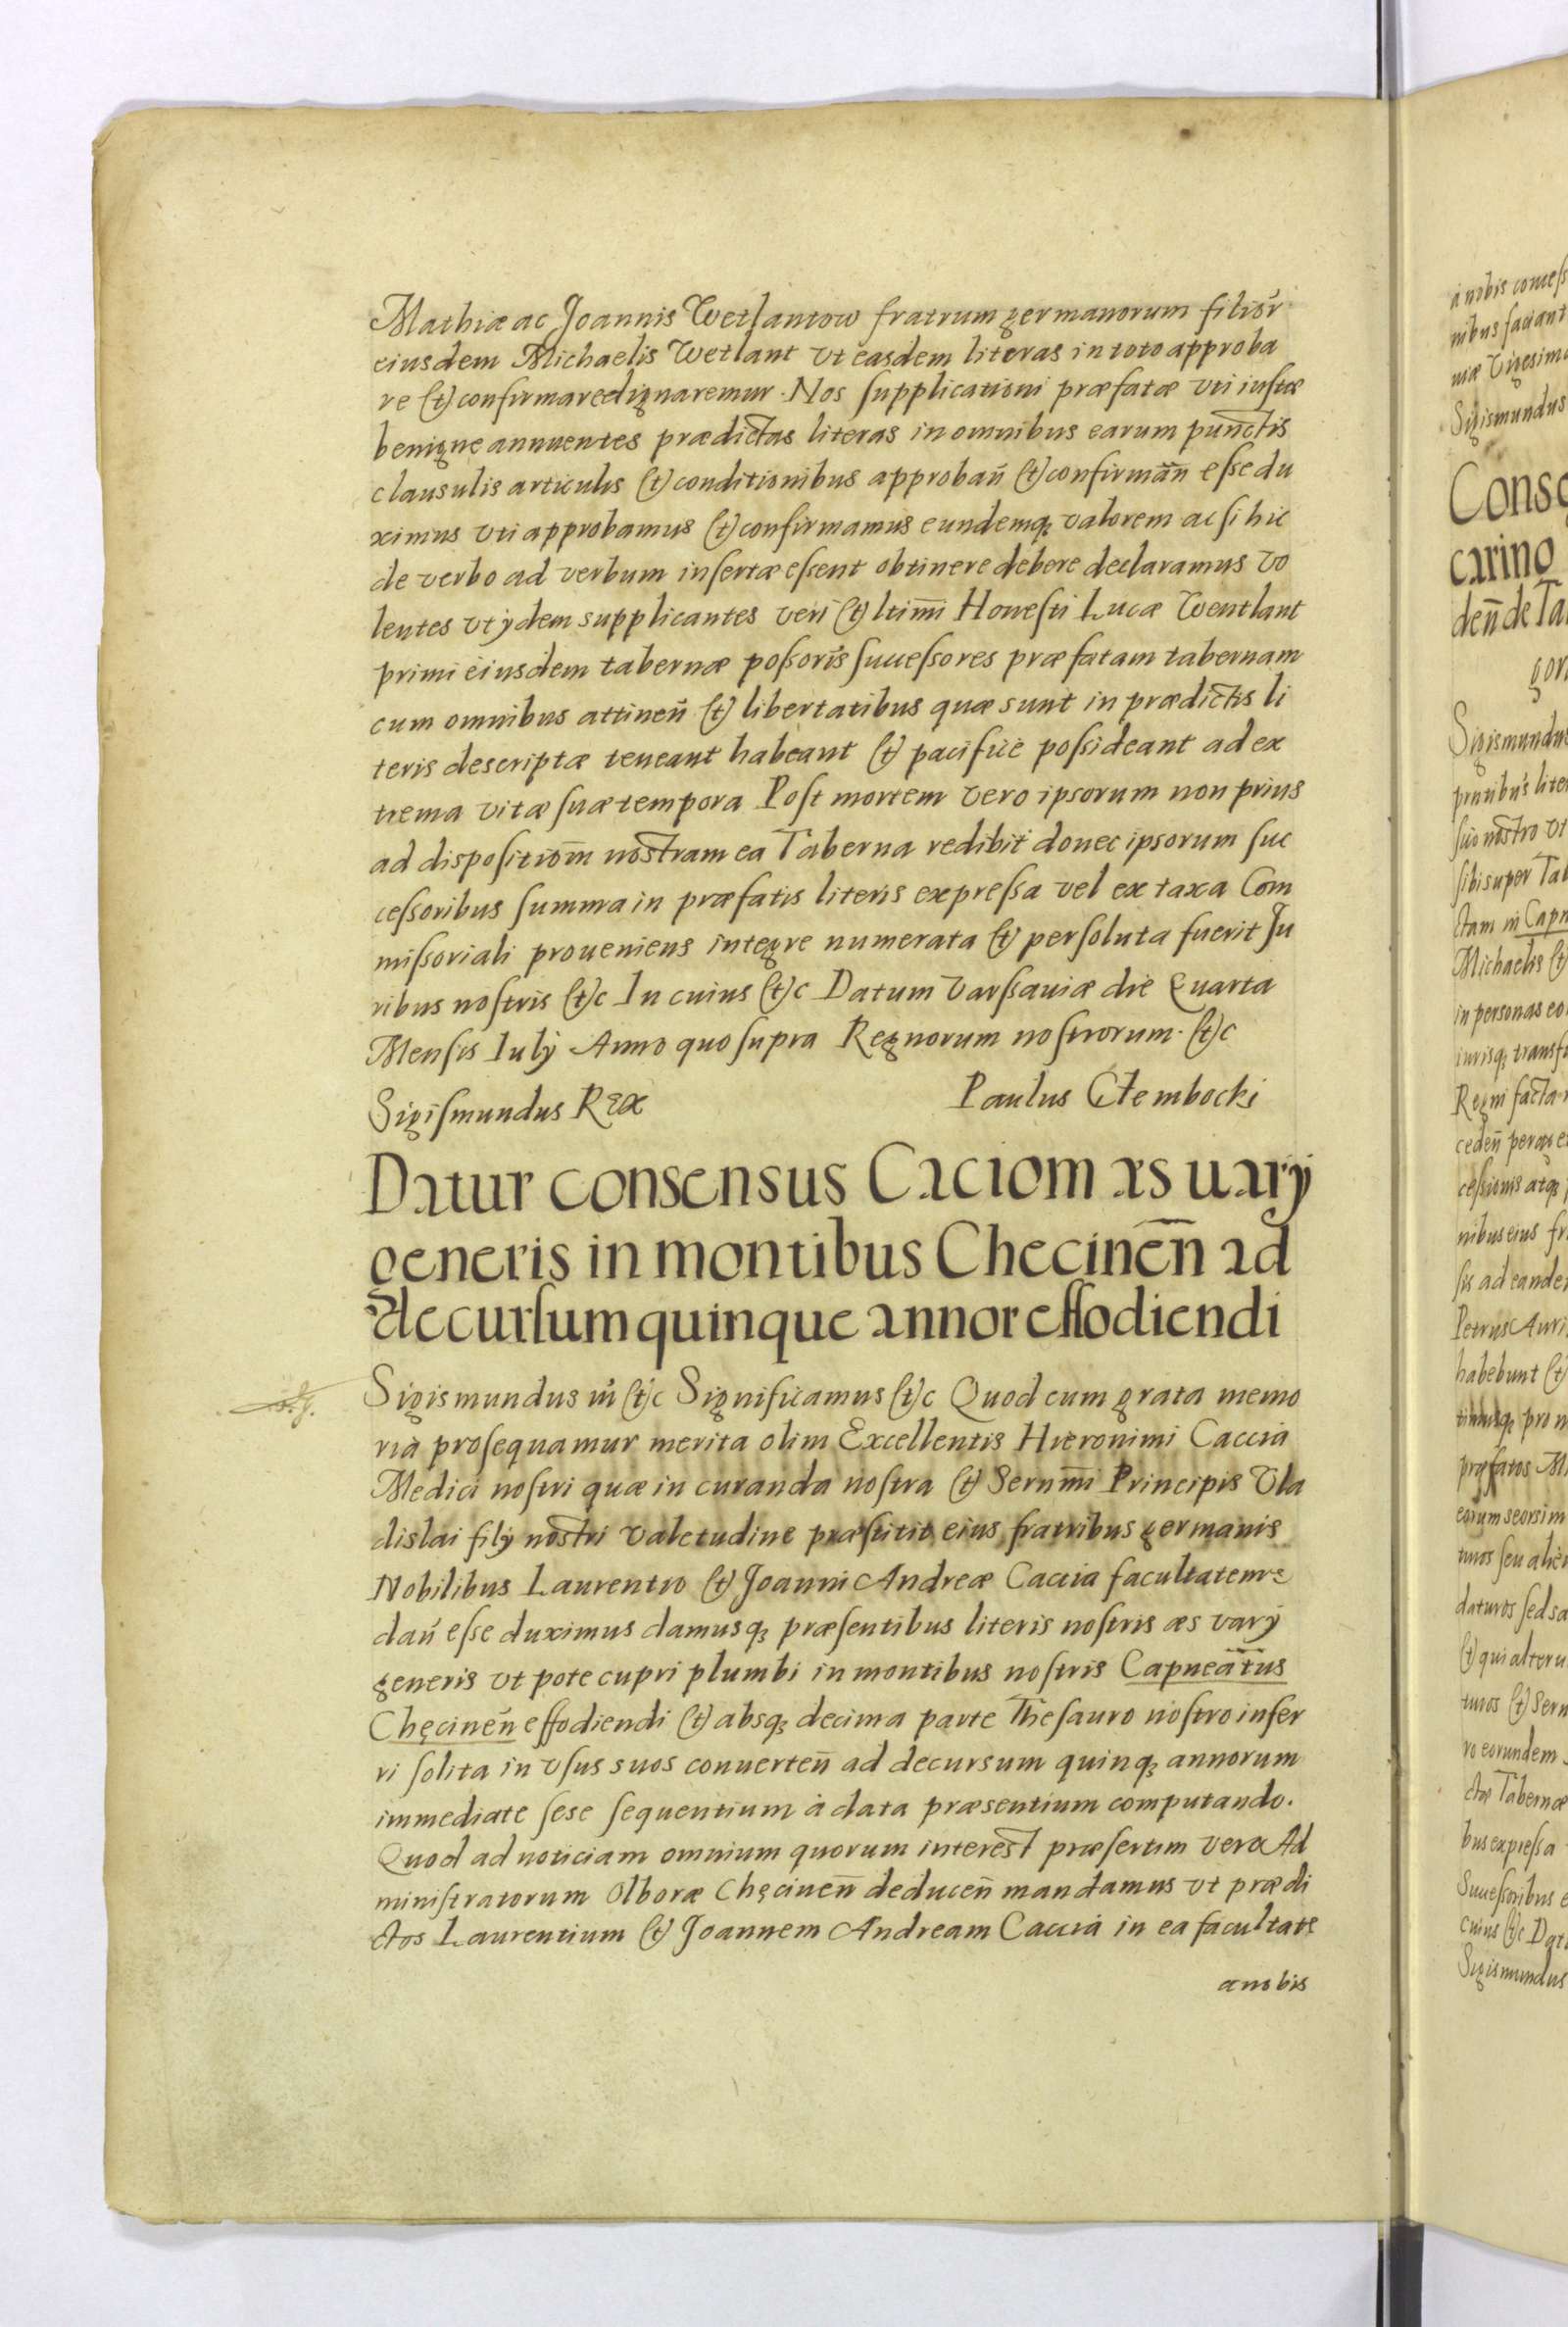 Mathiæ ac Joannis Wetlantow fratrum germanorum filior̃
eiusdem Michaelis Wetlant vt easdem literas in toto approba
re (et) confirmare dignaremur. Nos supplicationi præfatæ vti iustæ
benigne annuentes prædictas literas in omnibus earum punctis
clausulis articulis (et) conditionibus approban̄ (et) confirman̄ esse du
ximus vti approbamus (et) confirmamus eundemq; valorem ac si hic
de verbo ad verbum insertæ essent obtinere debere declaramus vo
lentes vt ijdem supplicantes veri (et) ltim̄i Honesti Lucæ Wentlant
primi eiusdem tabernæ possoris successores præfatam tabernam
cum omnibus attinen̄ (et) libertatibus quæ sunt in prædictis li
teris descriptæ teneant habeant (et) pacifice possideant ad ex
trema vitæ suæ tempora Post mortem vero ipsorum non prius
ad dispositiom̄ nostram ea Taberna redibit donec ipsorum suc
cessoribus summa in præfatis literis expressa vel ex taxa Com
missoriali proueniens integre numerata (et) persoluta fuerit Ju
ribus nostris (et)c In cuius (et)c Datum Varssauiæ die Quarta
Mensis Iulij Anno quo supra Regnorum nostrorum. (et)c
Sigismundus Rex Paulus Ctembocki
Datur consensus Caciom æs uarij
generis in montibus Checinen̄ ad
decursum quinque annor effodiendi
Sigismundus iii (et)c Significamus (et)c Quod cum grata memo
ria prosequamur merita olim Excellentis Hieronimi Caccia
Medici nostri quæ in curanda nostra (et) Sernm̄i Principis Vla
dislai filij nostri valetudine præstitit eius fratribus germanis
Nobilibus Laurentio (et) Joanni Andreæ Caccia facultatem
dan̄ esse duximus damusq; præsentibus literis nostris æs varij
generis vt pote cupri plumbi in montibus nostris Capneatus
Chęcinen̄ effodiendi (et) absq; decima parte Thesauro nostro infer
ri solita in vsus suos conuerten̄ ad decursum quinq; annorum
immediate sese sequentium à data præsentium computando.
Quod ad noticiam omnium quorum interest præsertim vero Ad
ministratorum Olboræ Chęcinen̄ deducen̄ mandamus vt prædi
ctos Laurentium (et) Joannem Andream Caccia in ea facultate
a nobis